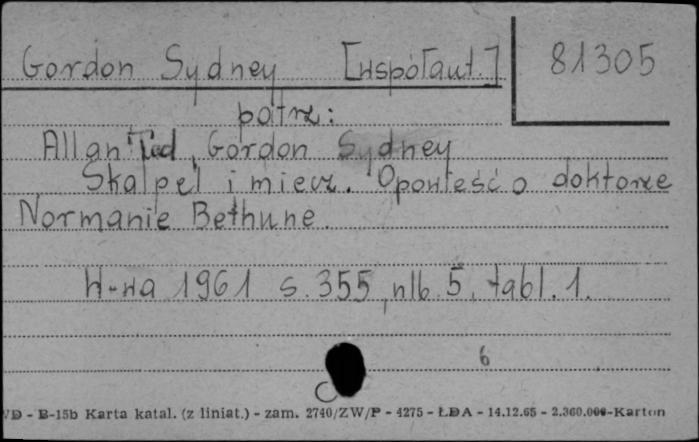 Gordon Sydney [współaut.] 81305
patrz:
Allan Ted, Gordon Sydney
Skalpel i miecz. Opowieść o doktorze
Normanie Bethune.
W-wa 1961 s. 355, nlb. 5, tabl. 1.
6
VD - B-15b Karta katal. (z liniat.) - zam. 2740/ZW/P - 4275 - ŁDA - 14.12.65 - 2.360.000-Karton